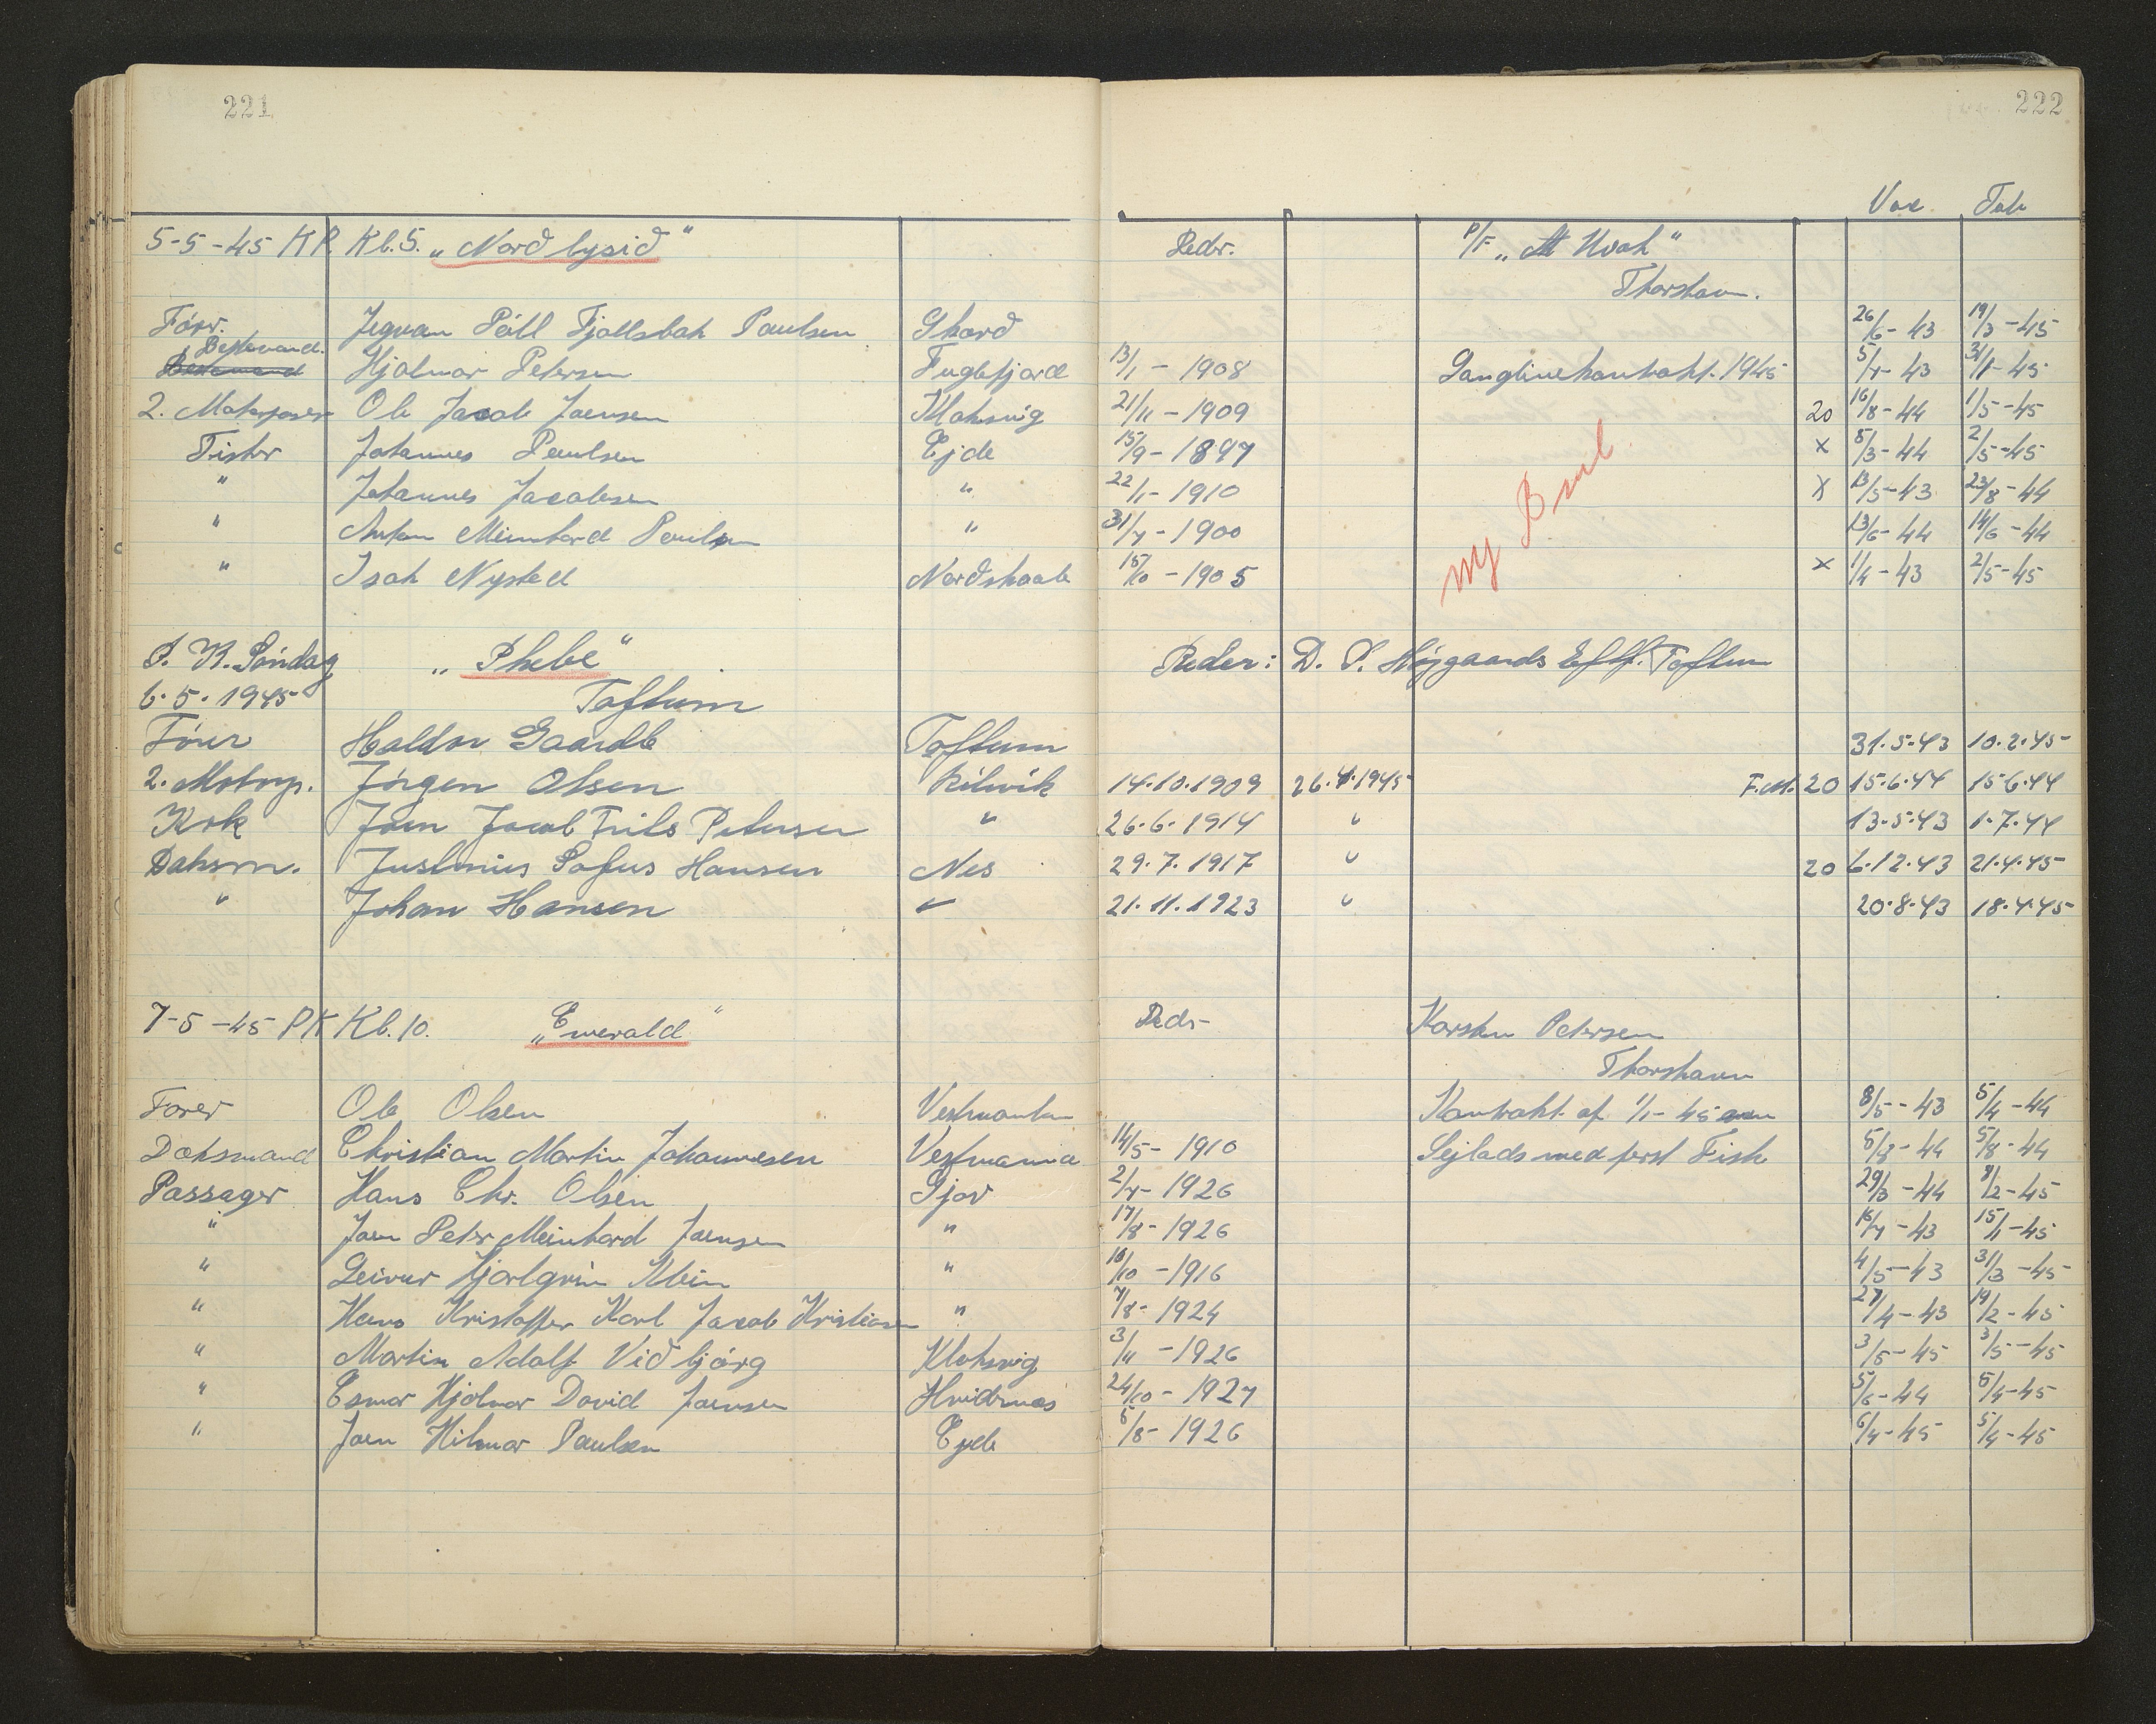 221 222
Vac Tub
5-5-45 KP. Kl. 5. „Nordlysid" Redr. P/F „ Kvak"
Thorshavn.
Förr. Jegvan Páll Fjallsbak Paulsen 26/6-43 19/3-45
Bestemand.
Bestemand Hjalmar Petersen Fuglefjord 13/1-1908 Langlinekontrakt. 1945 5/7-43 31/1-45
2. Motorpasser Ole Jacob Joensen Klaksvig 21/11-1909 20 16/8-44 1/5-45
Fisker Johannes Poulsen Ejde 15/9-1897 x 8/3-44 2/5-45
" Johannes Jacobsen " 22/1-1910 x 13/5-43 23/8-44
" Anton Meinhard Poulsen " 31/7-1900 13/6-44 14/6-44
" Isak Nysted Nordskaale 15/10-1905 x 1/4-43 2/5-45
ny B
P. K. Søndag „Phebe" Reder: D. P. Højgaards Eftf. Toftum
6.5.1945 Toftum
Förer Haldor Gaardb Toftum 31.5.43 10.2.45
2. Motorp. Jörgen Olsen Rituvik 14.10.1909 26.4.1945 F.M. 20 15.6.44 15.6.44
Kok Joen Jacob Frits Petersen " 26.6.1914 " 13.5.43 1.7.44
Daksm. Justinus Sofus Hansen Nes 29.7.1917 " 20 6.12.43 21.4.45
" Johan Hansen " 21.11.1923 " 20.8.43 18.4.45
7-5-45 PK Kl. 10. „Emerald" Redr- Karsten Petersen
Thorshavn
Förer Ole Olsen Vestmanhavn Kontrakt af 1/1-45 8/5-43 5/4-44
Dæksmand Christian Martin Johannesen Vestmanna 14/5-1910 Sejlads med fersk Fisk 5/8-44 5/8-44
Passager Hans Chr. Olsen Gjov 2/7-1926 29/3-44 8/2-45
" Joen Peter Meinhard Joensen " 17/8-1926 16/7-43 15/1-45
" Leivur Hjarlgrim Klein " 10/10-1916 4/5-43 31/3-45
" Hans Kristoffer Karl Jacob Kristiansen " 7/8-1924 27/4-43 19/2-45
" Martin Adolf Vidbjörg Klaksvig 3/11-1926 3/5-45 3/5-45
" Esmar Hjalmar David Joensen Hvidenæs 24/10-1927 5/6-44 5/4-45
" Joen Hilmar Paulsen Ejde 5/8-1926 6/4-45 5/4-45